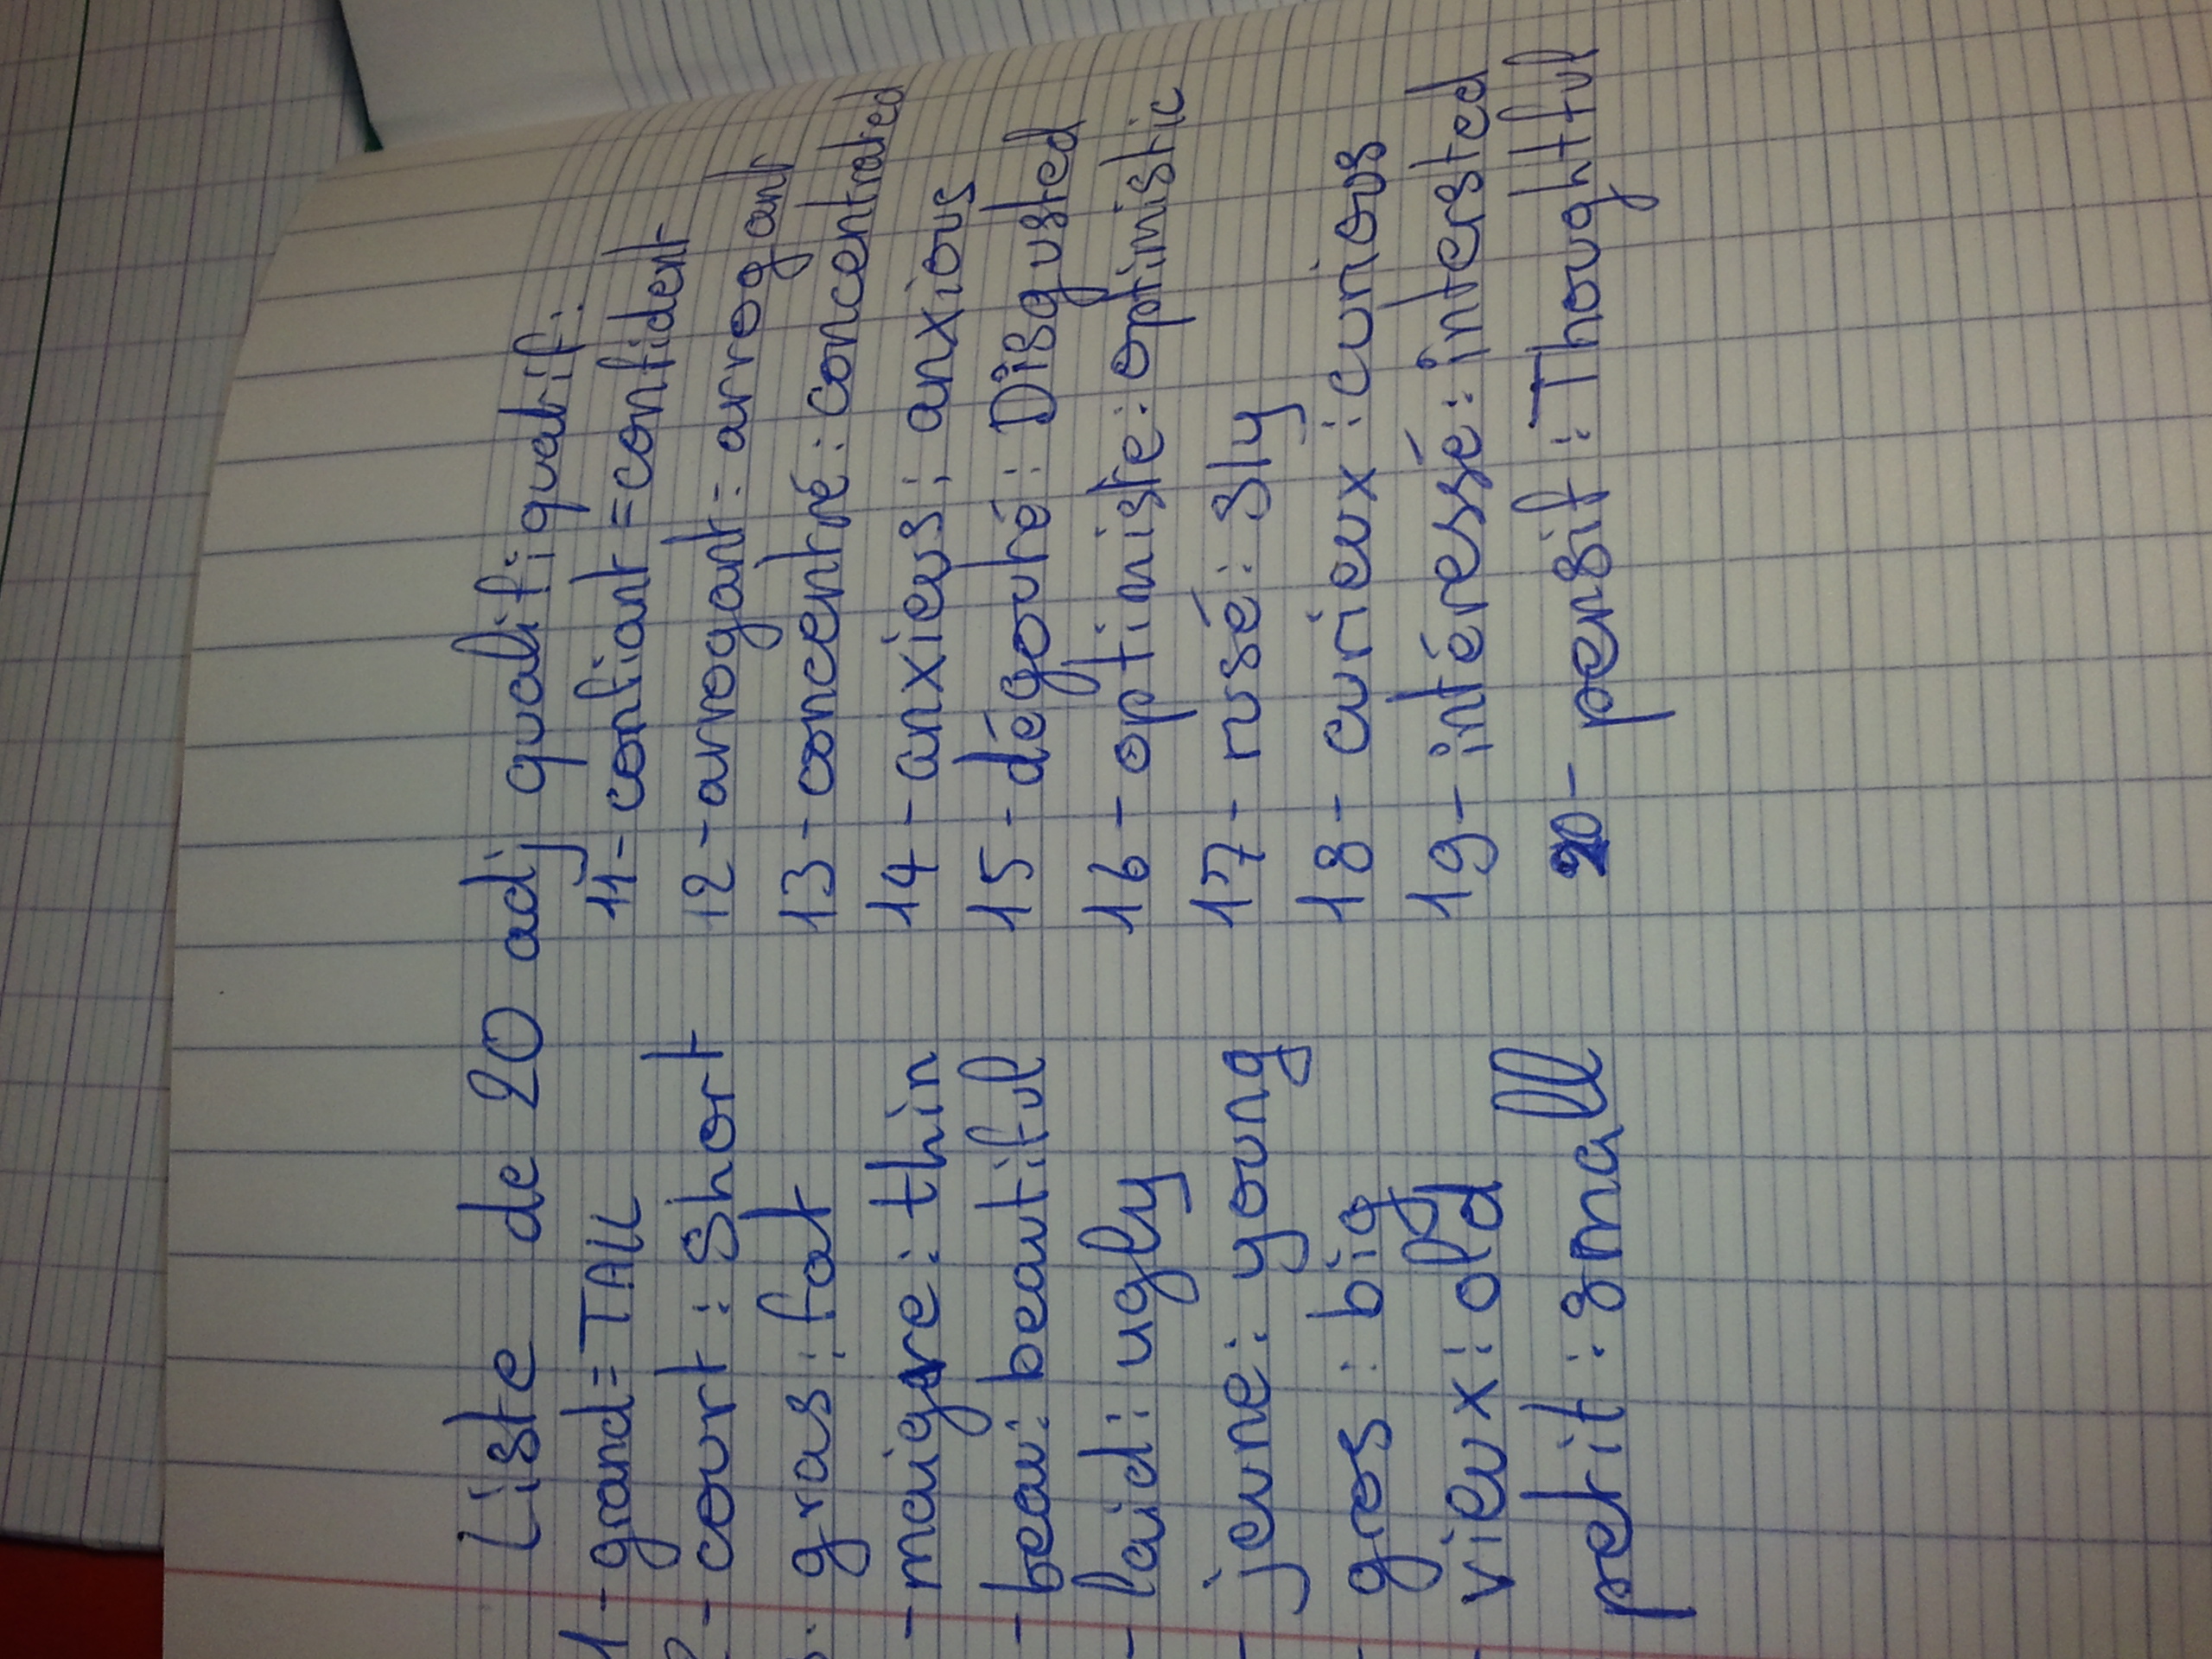 Liste de 20 adj qualifiqualif:
1-grand=TALL
2-court: Short
gras: fat
-maigre: thin
-beau: beautiful
-laid: ugly
-jeune: young
gros: big
vieux: old
petit: small
11-confiant=confident
12-arrogant=arrogant
13-concentré: concentrated
14-anxieus: anxious
15-dégouté: Disgusted
16-optimiste: optimistic
17-rusé: sly
18-curieux: curious
19-intéressé: intersted
20-pensif: Thoughtful